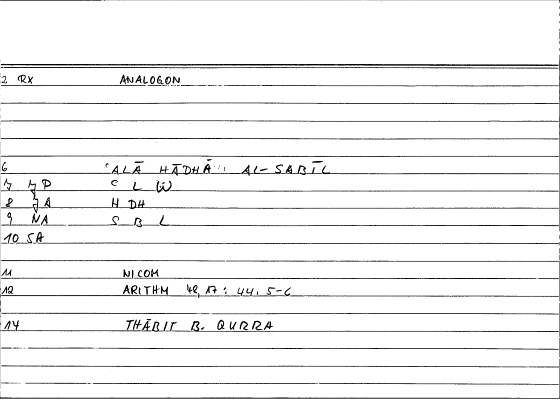 2 RX ANALOGON
6 ʿALĀ HĀDHĀ AL-SABĪL
7 JP ʿ L (W)
8 JA H DH
9 NA S B L
10 SA
11 NICOM
12 ARITHM 44, 5-6
14 THĀBIT B. QURRA